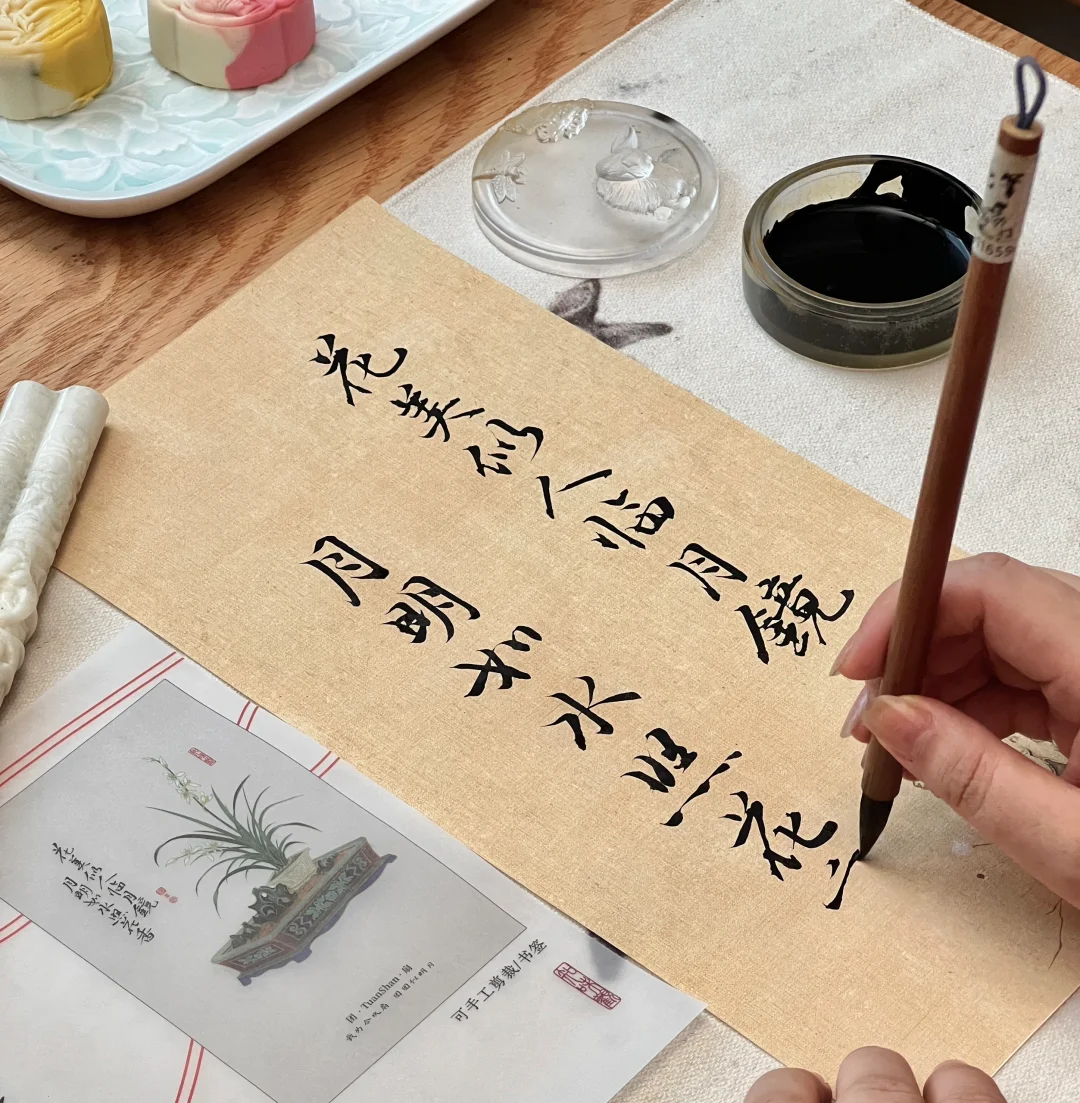 花美似人临月鏡
月明如水照花
花美似人临月鏡
月明如水照花香
团·TuanShan·扇
可手工剪裁/书签